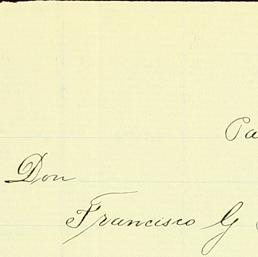 Pa
Don
Francisco G